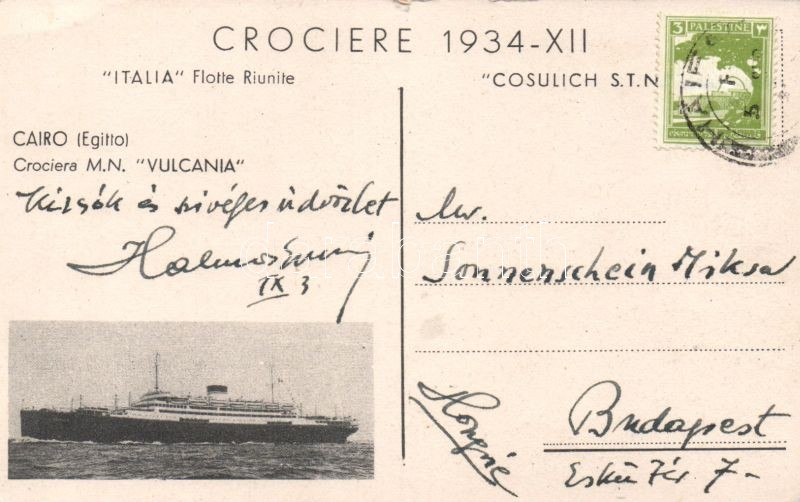 CROCIERE 1934-XII
"ITALIA" Flotte Riunite
"COSULICH S.T.N
CAIRO (Egitto)
Crociera M.N. "VULCANIA"
és szivéges üdvözlet
Halmos
IX 3
3 PALESTINE ٣
Sonnenschein Miksa
Hongrie
Budapest
Eskü tér 7-